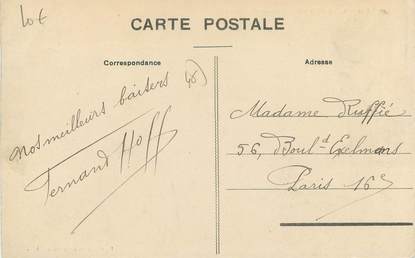 10€
CARTE POSTALE
Correspondance
Adresse
Nos meilleurs baisers
45
Fernand Hoff
Madame Ruffié
56, Boul^d Exelmans
Paris 16^e